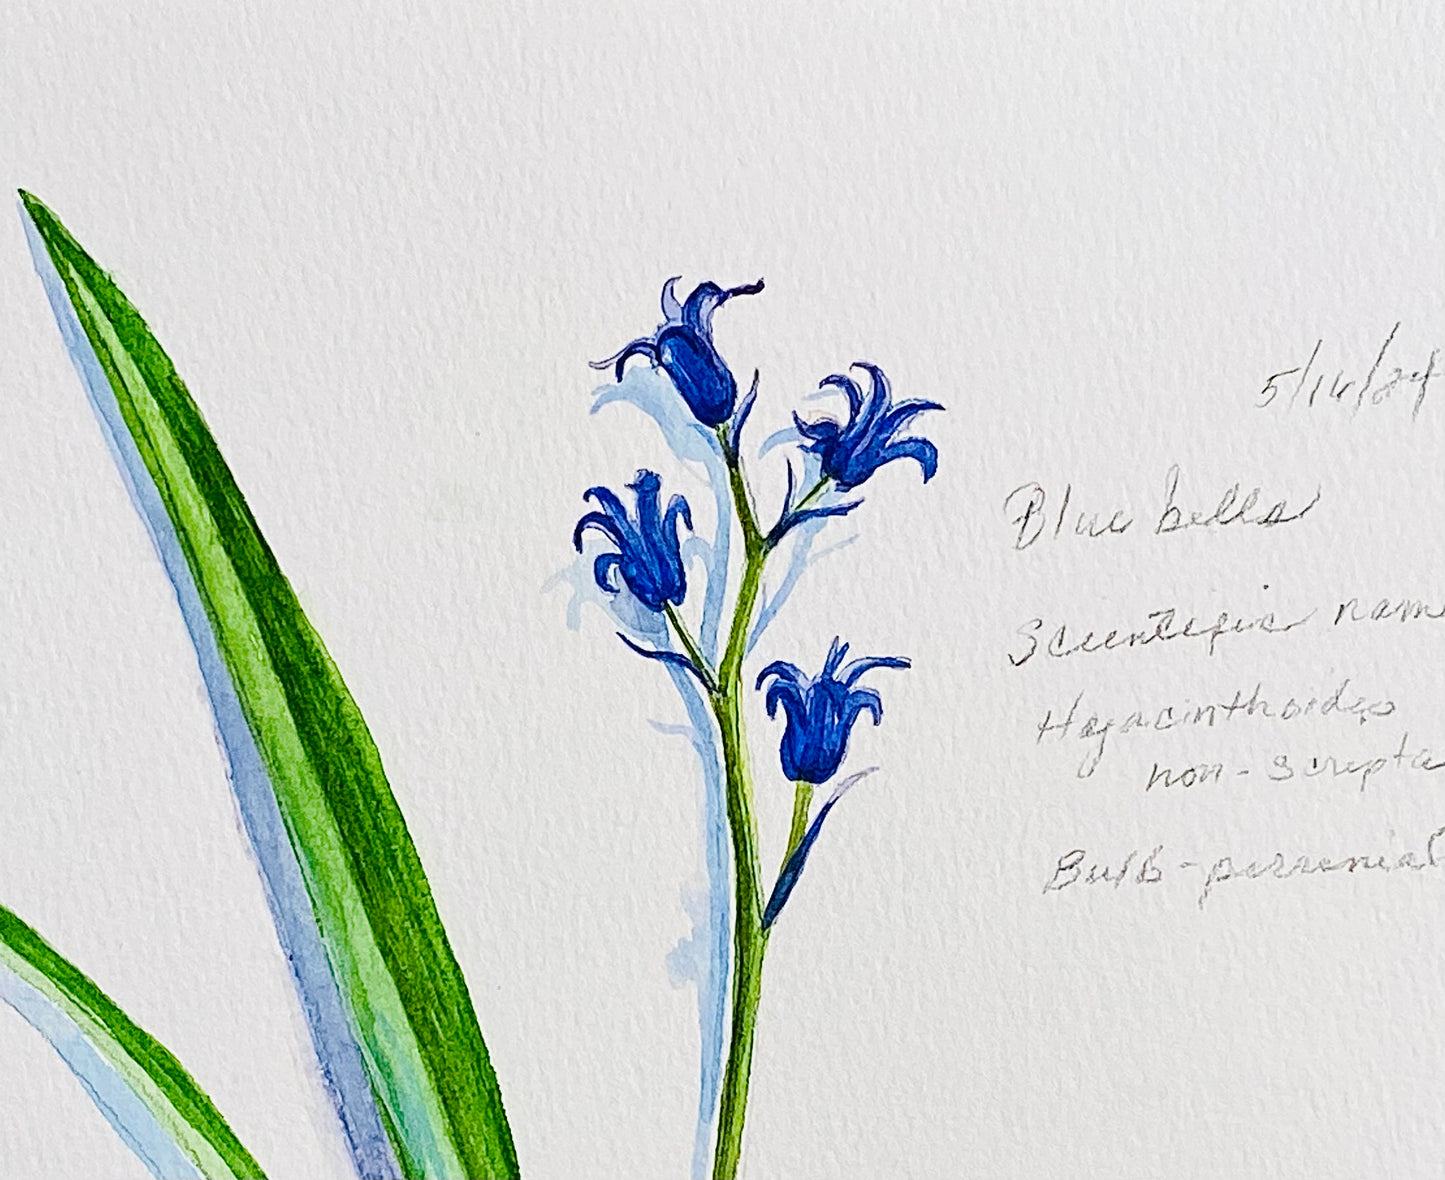 5/16/24
Blue bells
Scientific nam
Hyacinthoides
non-scripta
Bulb-perrenial